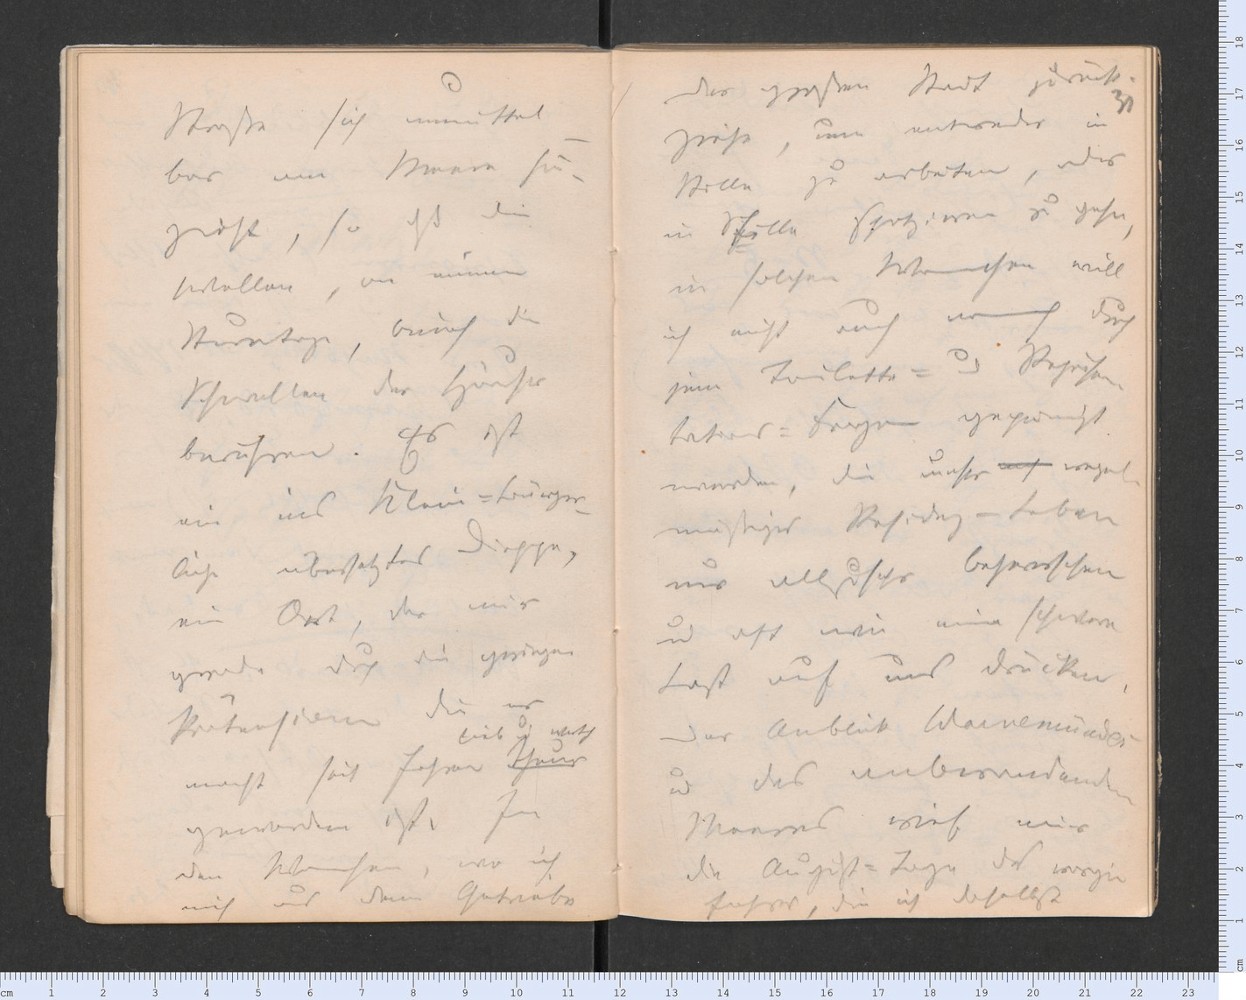 Straße sich unmittel-
bar am Meere hin-
zieht, so daß die
Wellen, an einem
Sturmtage, beinah die
Schwellen der Häuser
berühren. Es ist
ein ins Klein-bürger-
liche übersetztes Dieppe,
ein Ort, der mir
gerade durch die geringen
Prätensionen die er
lieb u werth
macht seit Jahren theuer
geworden ist. In
den Wochen, wo ich
mich aus dem Getriebe
31
der großen Stadt zurück-
ziehe, um entweder in
Stille zu arbeiten, oder
in Stille spatzieren zu gehn,
in solchen Wochen will
ich nicht auch noch durch
jene Toilette- u Repräsen-
tations-Sorgen gepeinigt
werden, die unser auf regel-
mäßiges Residenz-Leben
nur allzusehr beherrschen
u oft wie eine schwere
Last auf uns drücken.
Der Anblick Warnemündes
u des anbrandenden
Meeres rief mir
die August-Tage des vorigen
Jahres, die ich daselbst